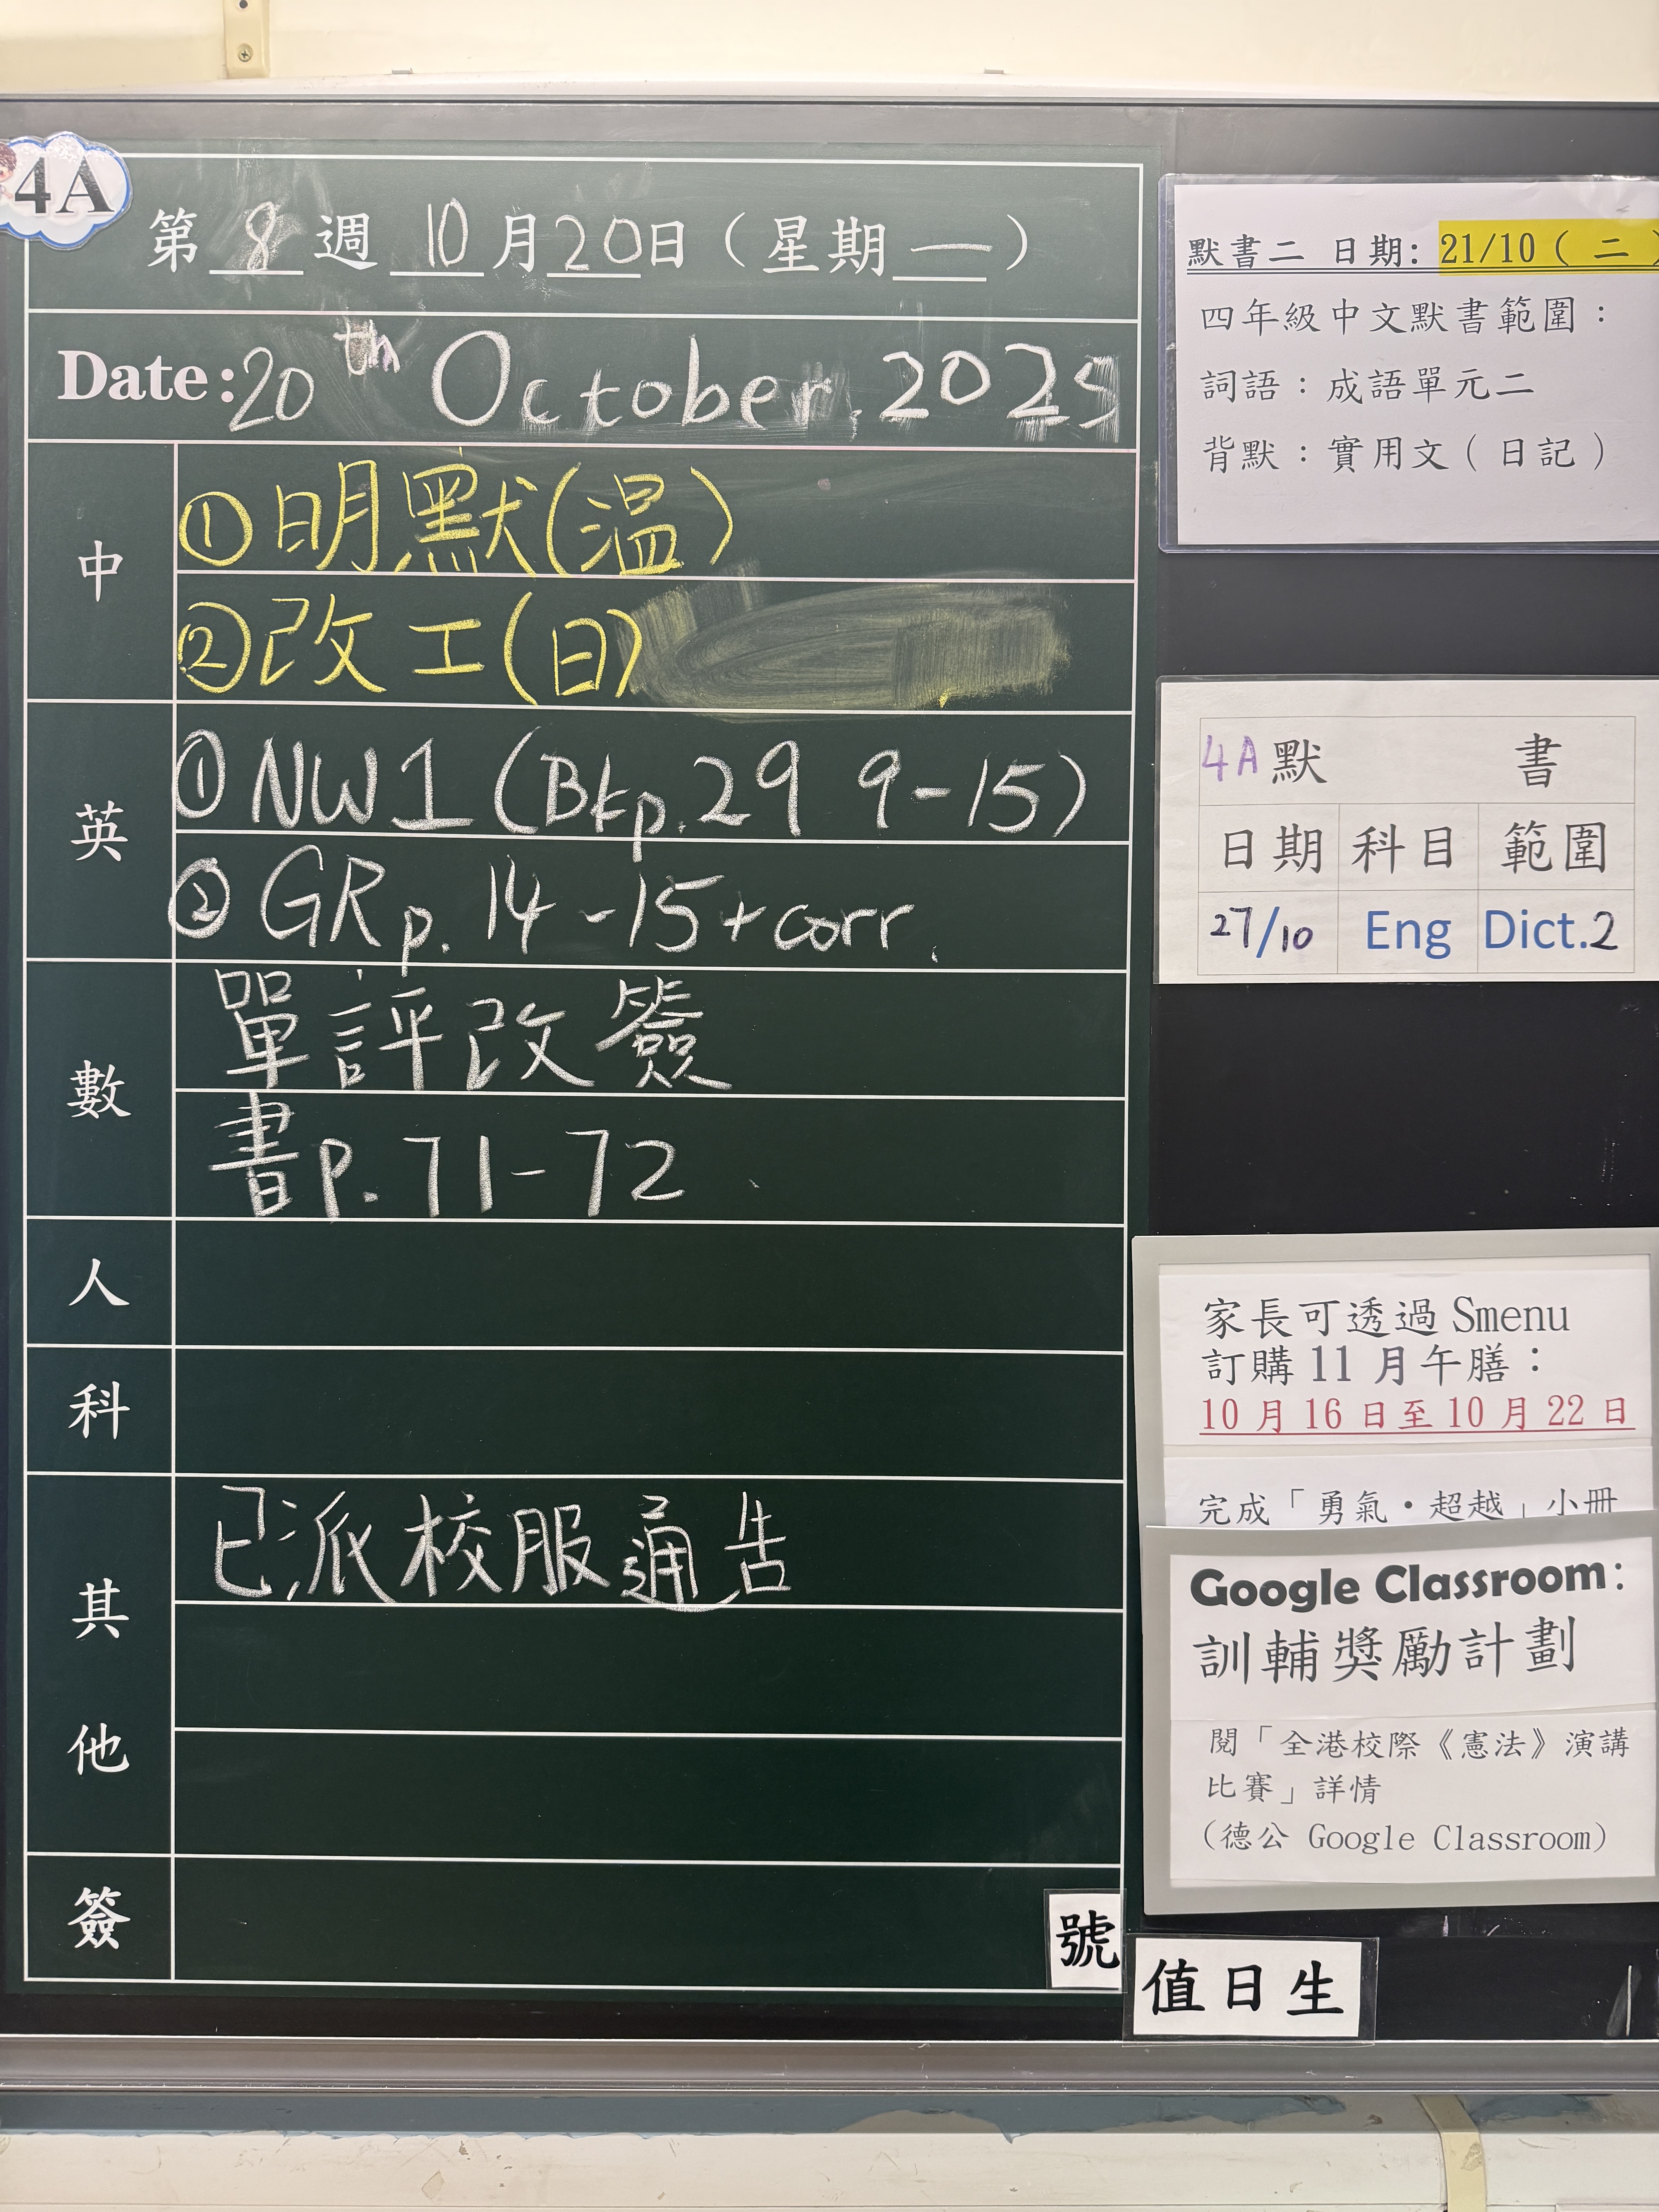 4A
第 8 週 10 月 20 日（星期 一 ）
Date: 20th October, 2025
中
①明默(温)
②改工(日)
英
①NW1 (Bkp.29 9-15)
②GR p. 14 -15 + corr.
數
單評改簽
書p. 71-72
人
科
其他
已派校服通告
簽
號
值日生
默書二 日期: 21/10 ( 二 )
四年級中文默書範圍：
詞語：成語單元二
背默：實用文（日記）
4A 默 書
日期 科目 範圍
27/10 Eng Dict.2
家長可透過 Smenu
訂購 11 月午膳：
10 月 16 日至 10 月 22 日
完成「勇氣・超越」小冊
Google Classroom:
訓輔獎勵計劃
閱「全港校際《憲法》演講
比賽」詳情
(德公 Google Classroom)